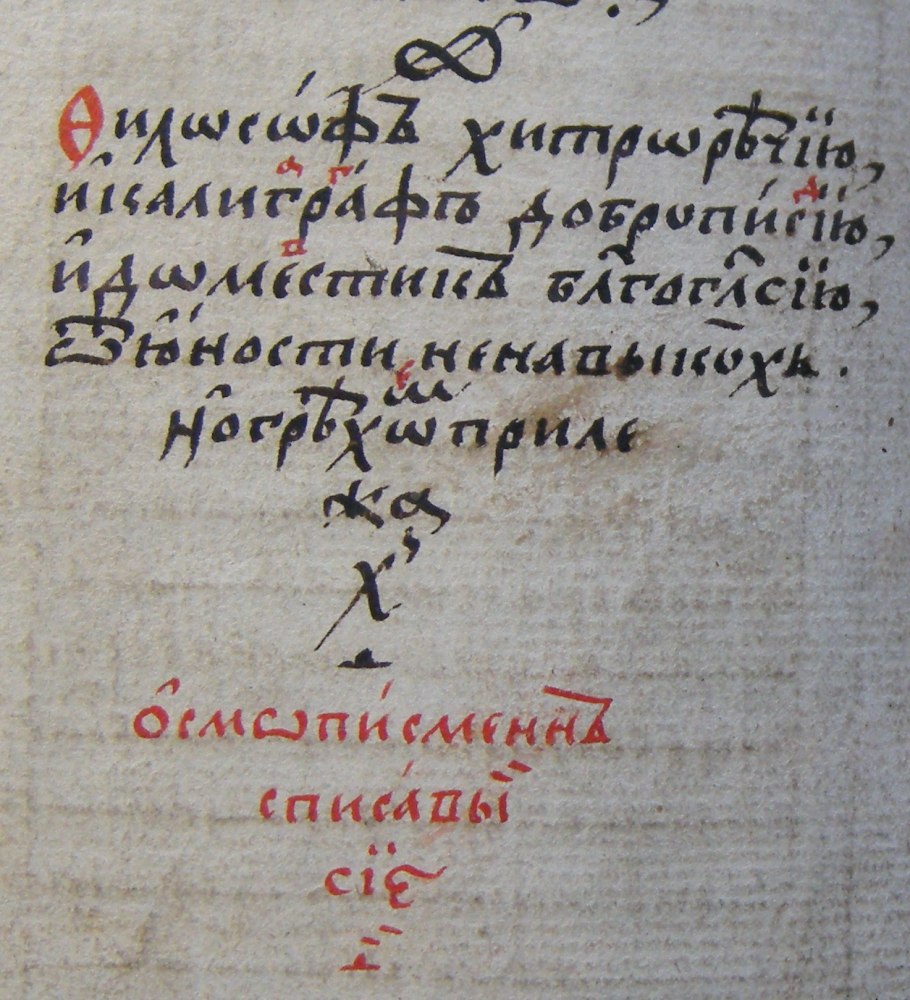 Ѳилѡсѡ́фъ хитрѡрѣ́чїю,
и҆калигра́фъ добропи́сїю,
и҆дѡместикъ бл҃гогл҃сїю,
Ѿю҆ности ненавыкохъ.
Но҆грѣхѡм приле
жа
х
ѻ҆смѡпи́сменнъ
списа́вый
сїѐ